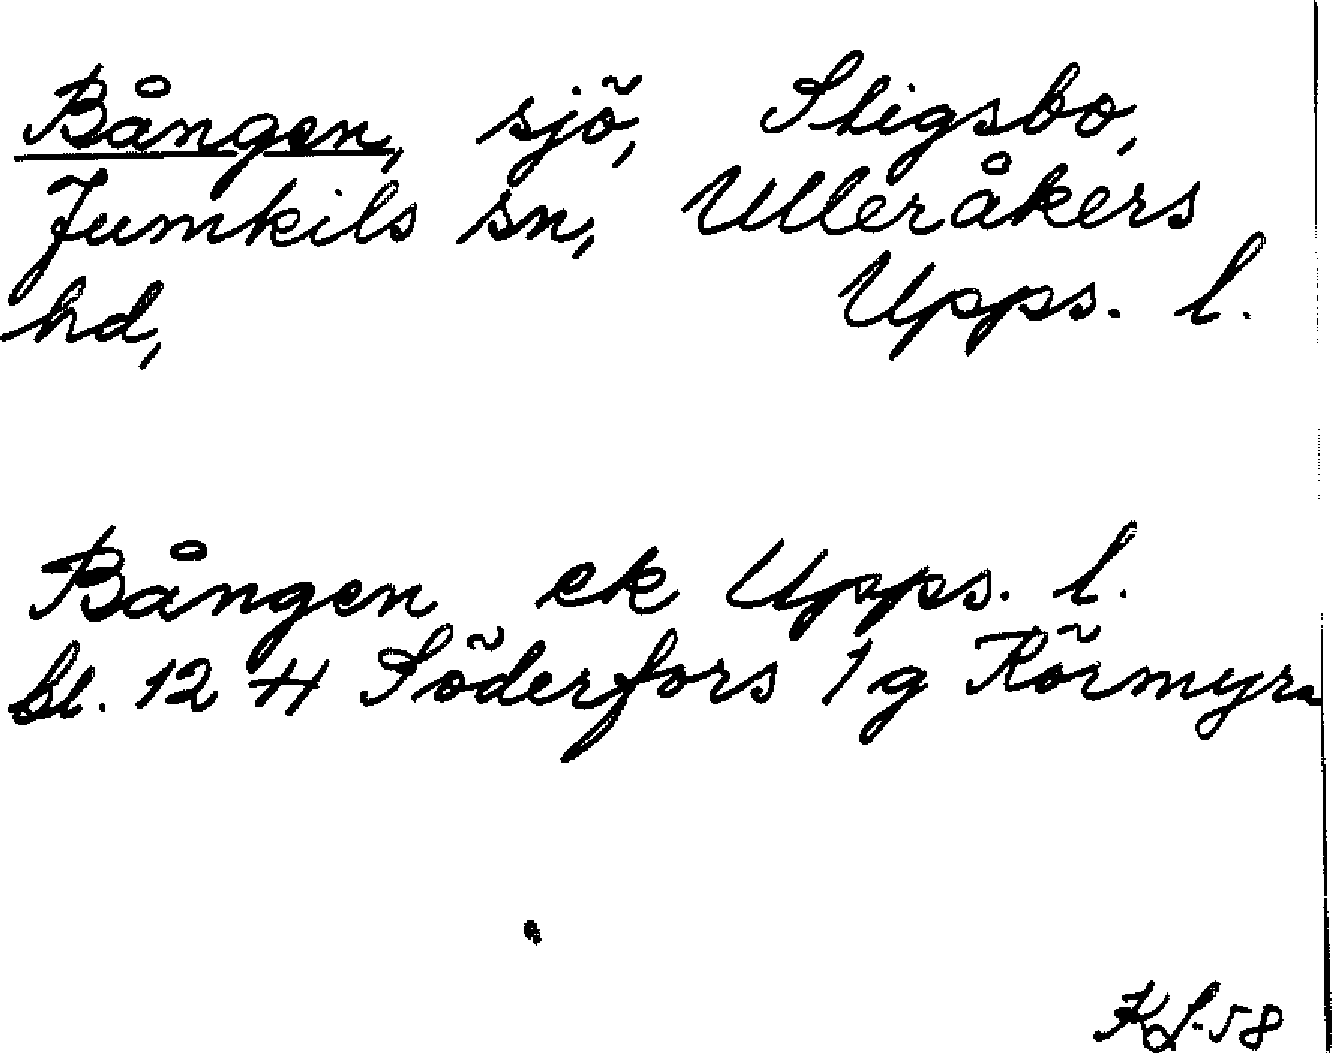 Bången, sjö, Stigsbo,
Jumkils sn, Ulleråkers
hd, Upps. l.
Bången ek Upps. l.
bl. 12 H Söderfors 1 g Rörmyra
KL-58